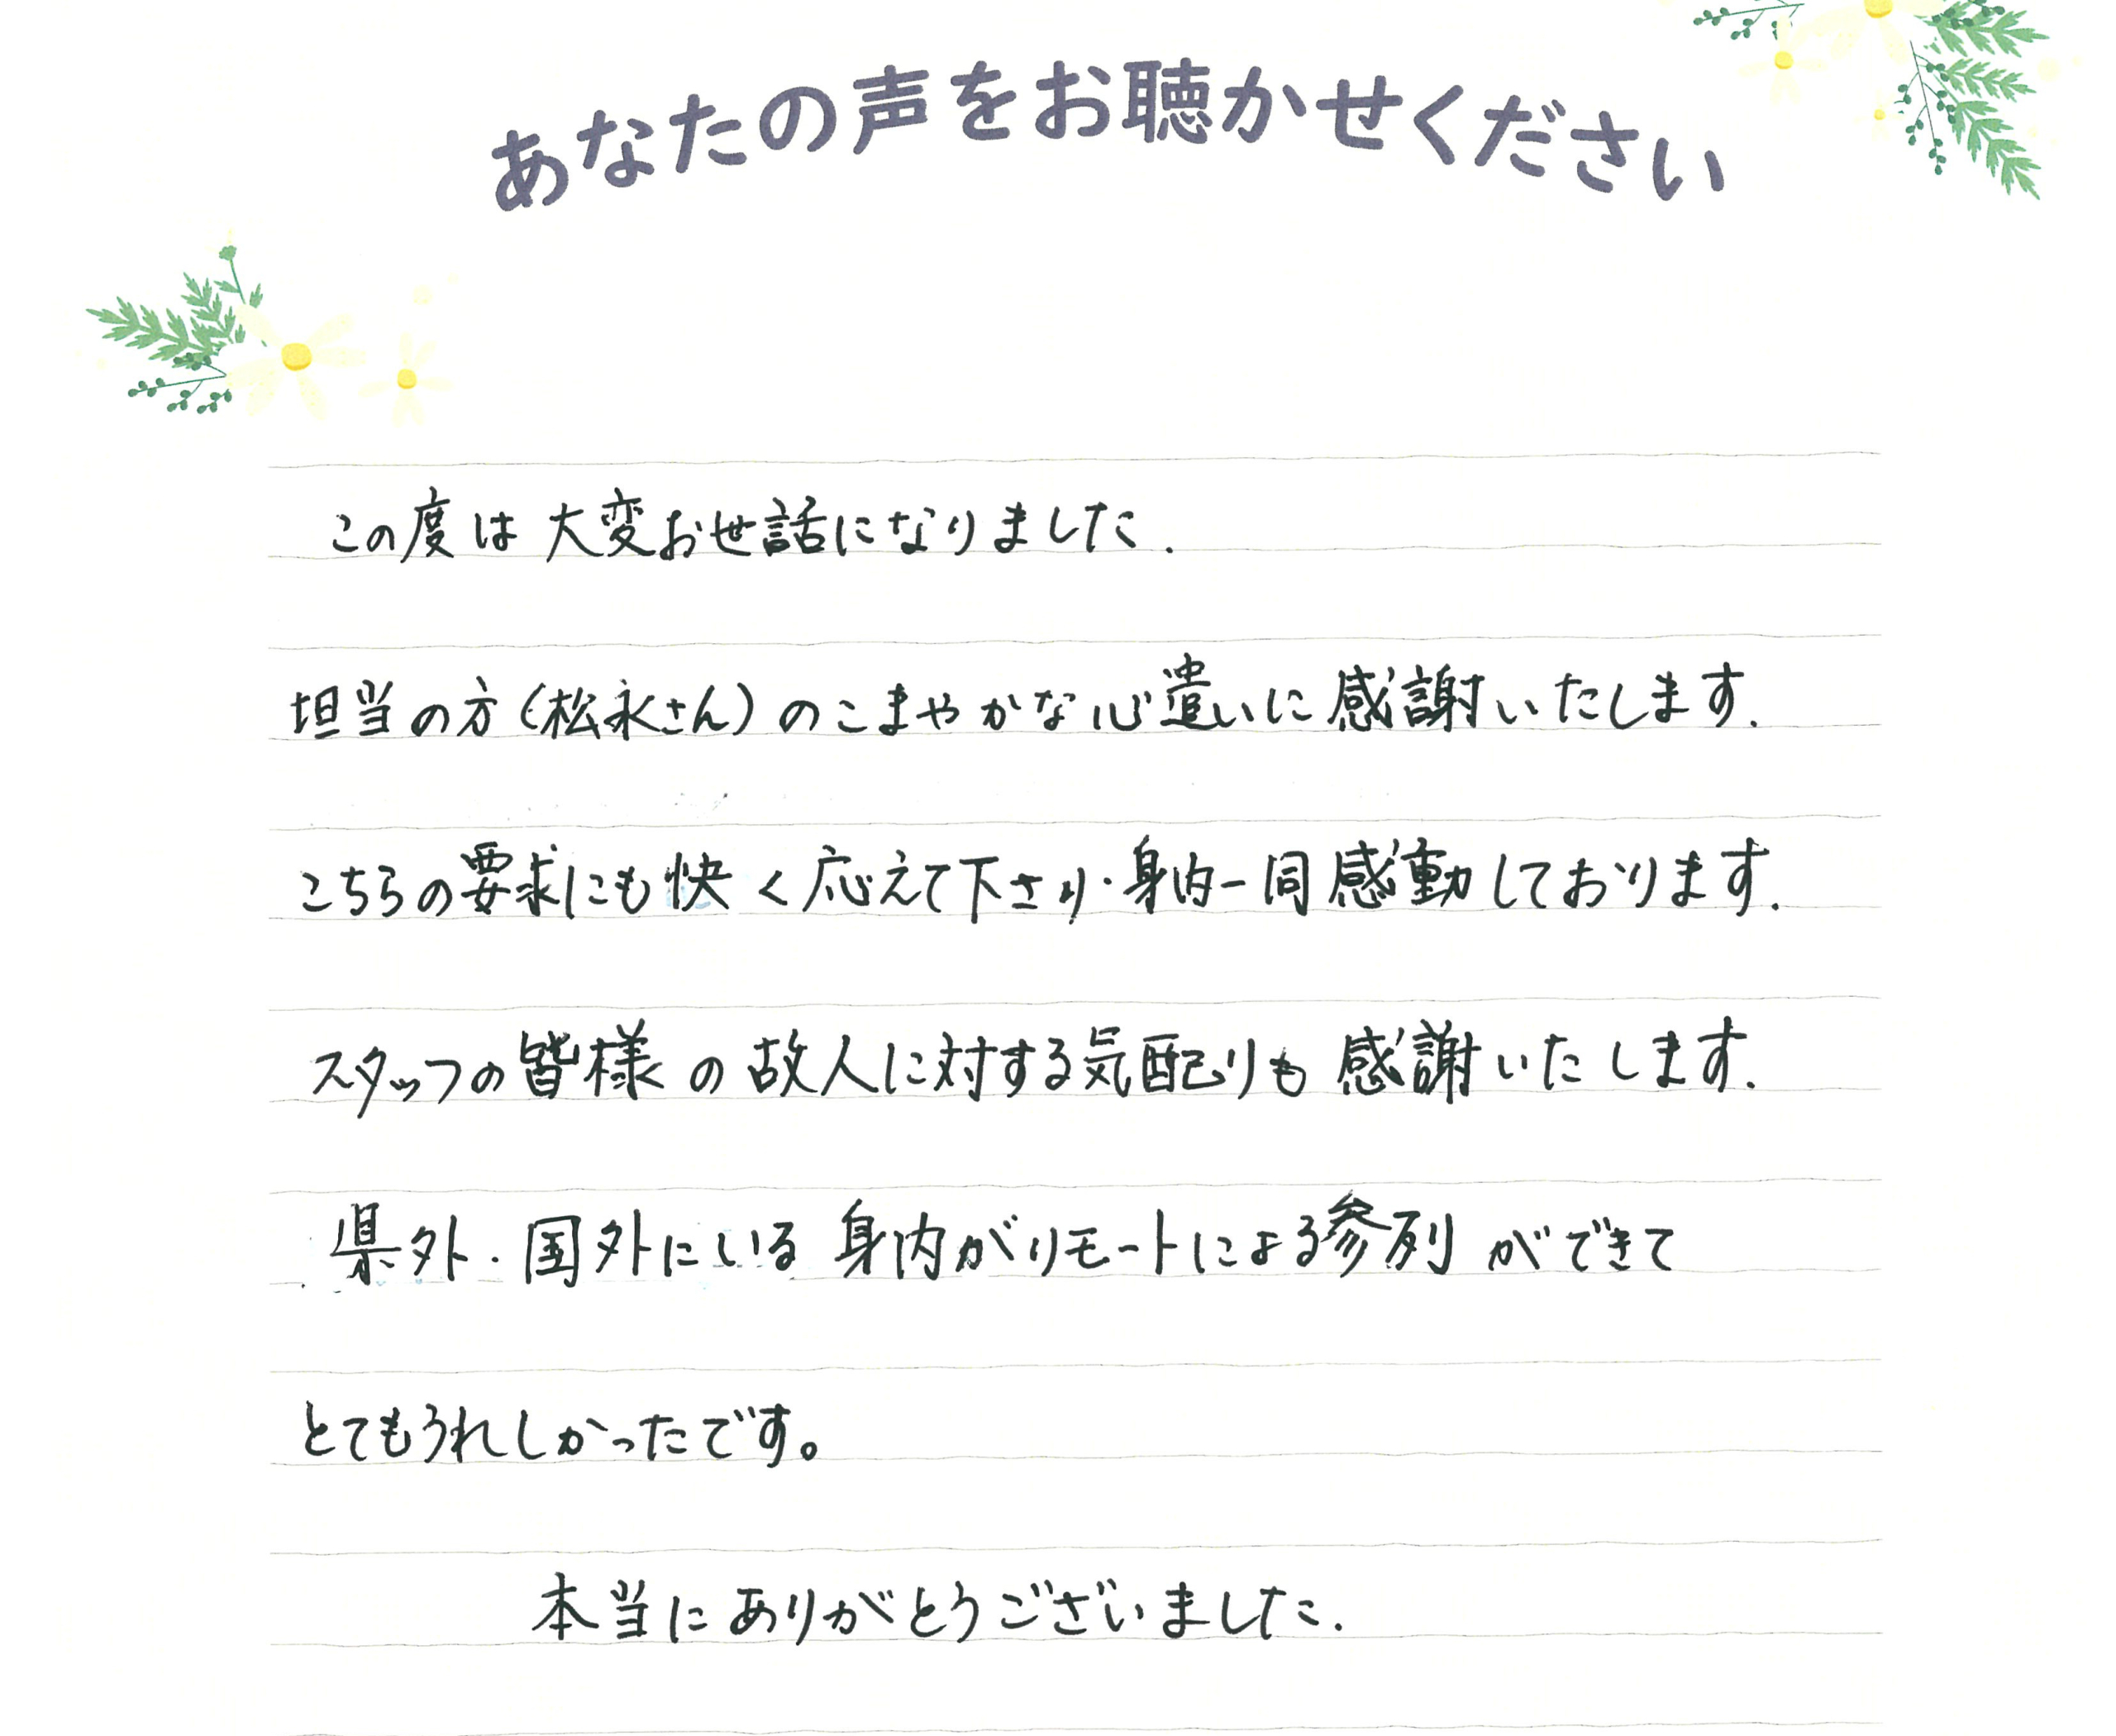 あなたの声をお聴かせください
この度は大変お世話になりました.
担当の方(松永さん)のこまやかな心遣いに感謝いたします.
こちらの要求にも快く応えて下さり・身内一同感動しております.
スタッフの皆様の故人に対する気配りも感謝いたします.
県外・国外にいる身内がリモートによる参列ができて
とてもうれしかったです。
本当にありがとうございました.